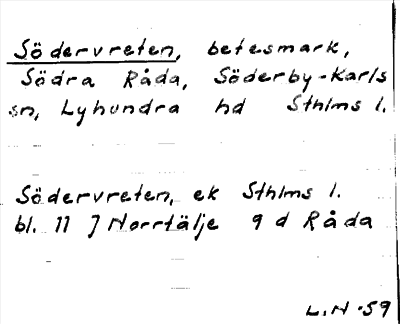 Södervreten, betesmark,
Södra Råda, Söderby-Karls
sn, Lyhundra hd Sthlms l.
Södervreten, ek Sthlms l.
bl. 11 J Norrtälje 9 d Råda
L.N -59